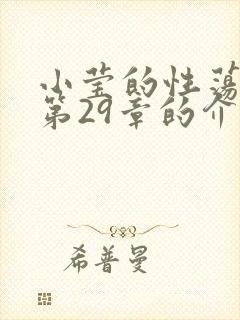 小莹的性荡
第29章的介
希普曼